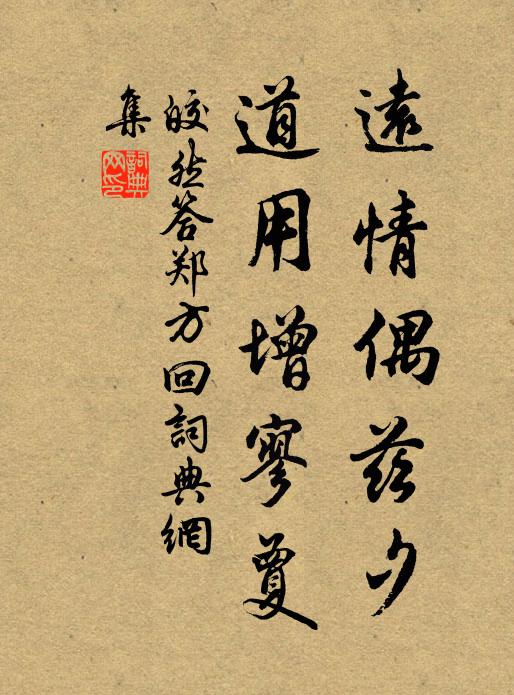 遠情偶茲夕
道用增寥夐
皎然答郑方回詞典網
集
詞典網印